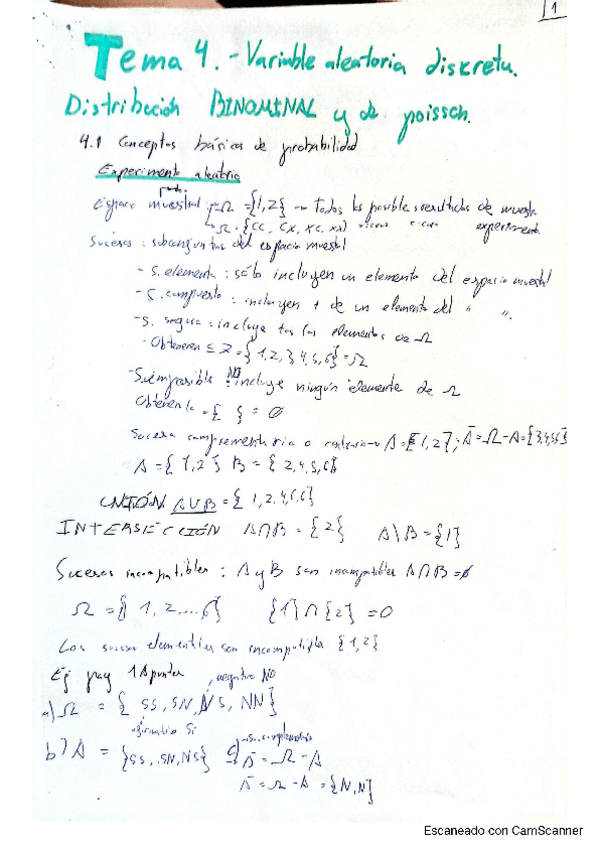 1
Tema 4.- Variable aleatoria discreta.
Distribución BINOMINAL y de poisson.
4.1 Conceptos básicos de probabilidad
Experimento aleatorio
Espacio muestral: Ω = {1,2} → todos los posibles resultados de
Ω = {CC, CX, XC, XX} experimento
Sucesos: subconjuntos del espacio muestral
- S. elemental: sólo incluyen un elemento del espacio muestral
- S. compuesto: incluyen + de un elemento del " ".
- S. seguro: incluye los elementos de Ω
· Obtener ≤ 7 = {1,2,3,4,5,6} = Ω
- S. imposible: NO incluye ningún elemento de Ω
Obtener = { } = ∅
Suceso complementario o contrario → A = {1,2}; Ā = Ω - A = {3,4,5,6}
A = {1,2} B = {2,4,5,6}
UNIÓN A∪B = {1,2,4,5,6}
INTERSECCIÓN A∩B = {2} A\B = {1}
Sucesos incompatibles: A y B son incompatibles A∩B = ∅
Ω = { 1, 2....6} {1}∩{2} = 0
Los sucesos elementales son incompatibles {1,2}
Ej pag 1 Apuntes , negativo NO
a) Ω = { SS, SN, NS, NN}
afirmativo Sí
b) A = {SS, SN, NS} c) Ā = Ω - A
Ā = Ω - A = {N,N}
Escaneado con CamScanner